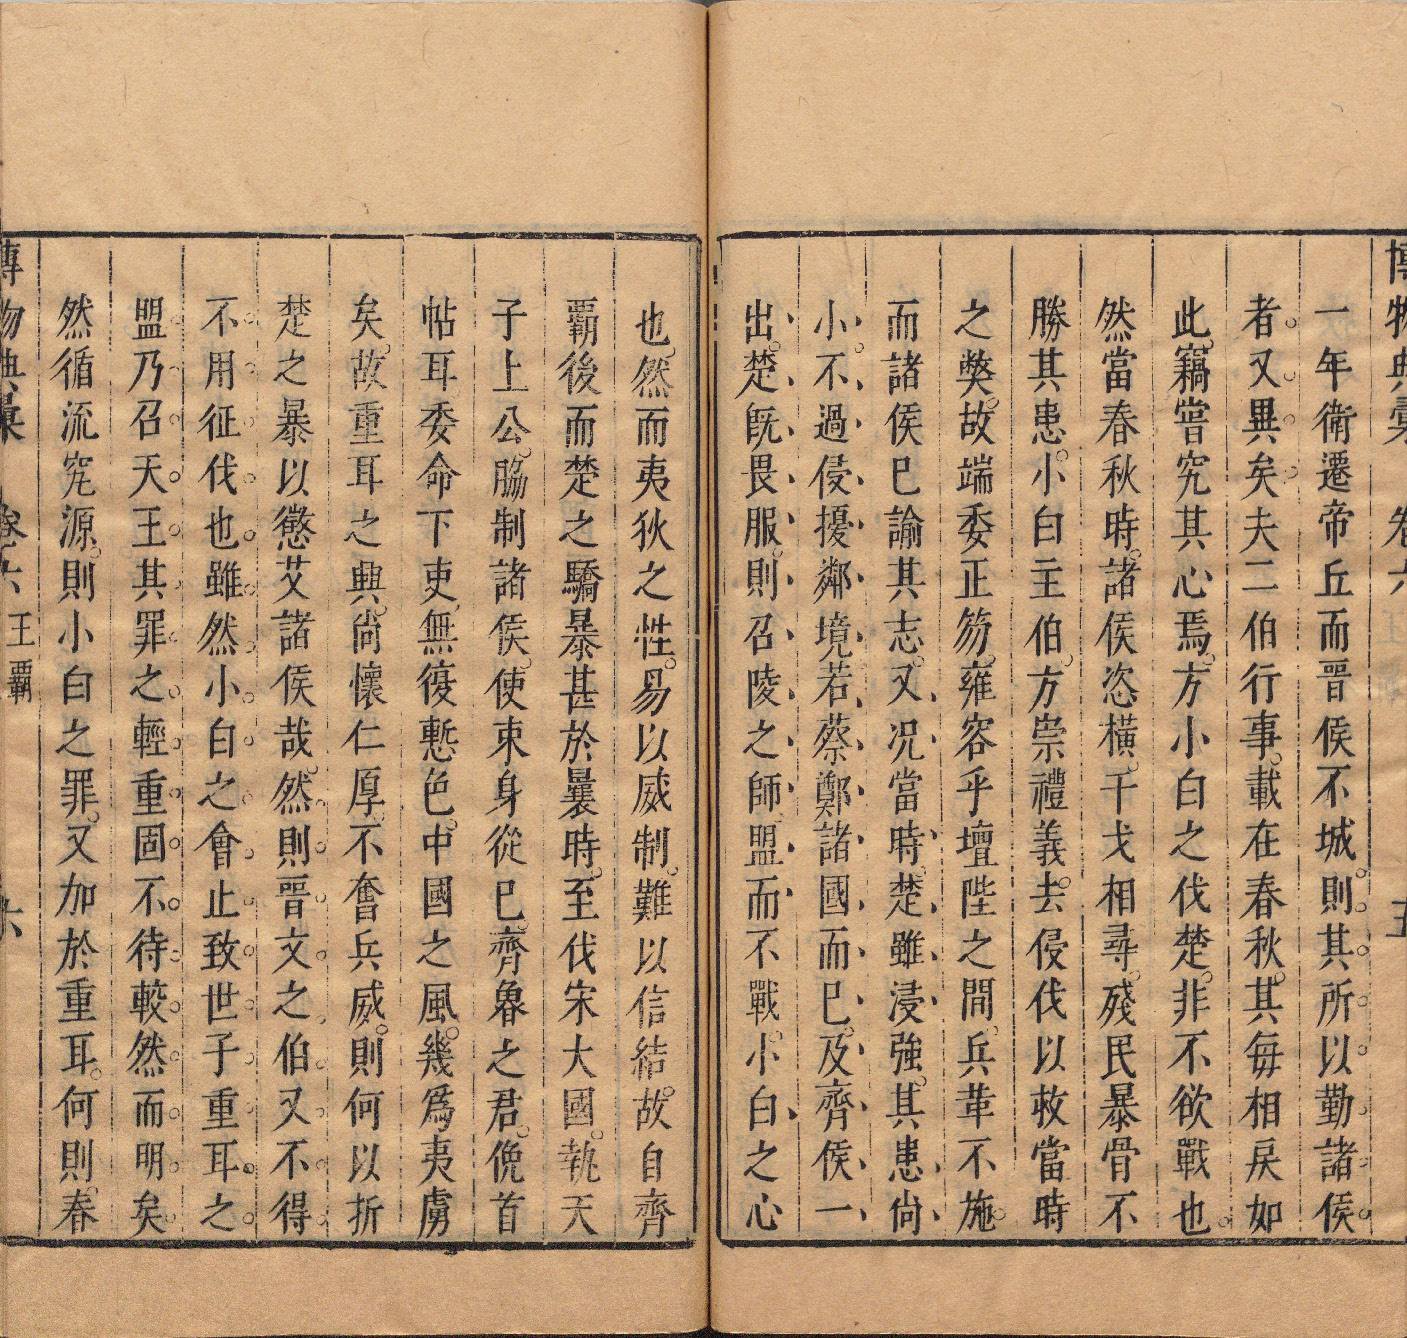 博物典彙 卷六 五
一年衛遷帝丘而晉侯不城則其所以勤諸侯
者又異矣夫二伯行事載在春秋其每相戾如
此竊嘗究其心焉方小白之伐楚非不欲戰也
然當春秋時諸侯恣橫干戈相尋殘民暴骨不
勝其患小白主伯方崇禮義去侵伐以救當時
之獘故端委正笏雍容乎壇陛之間兵革不施
而諸侯已諭其志又况當時楚雖浸強其患尙
小不過侵擾鄰境若蔡鄭諸國而已及齊侯一
出楚旣畏服則召陵之師盟而不戰小白之心
也然而夷狄之性易以威制難以信結故自齊
覇後而楚之驕暴甚於曩時至伐宋大國執天
子上公脇制諸侯使束身從已齊魯之君俛首
帖耳委命下吏無復慙色中國之風幾爲夷虜
矣故重耳之興尙懷仁厚不奮兵威則何以折
楚之暴以懲艾諸侯哉然則晉文之伯又不得
不用征伐也雖然小白之會止致世子重耳之
盟乃召天王其罪之輕重固不待較然而明矣
然循流究源則小白之罪又加於重耳何則春
博物典彙 卷六 王覇 六